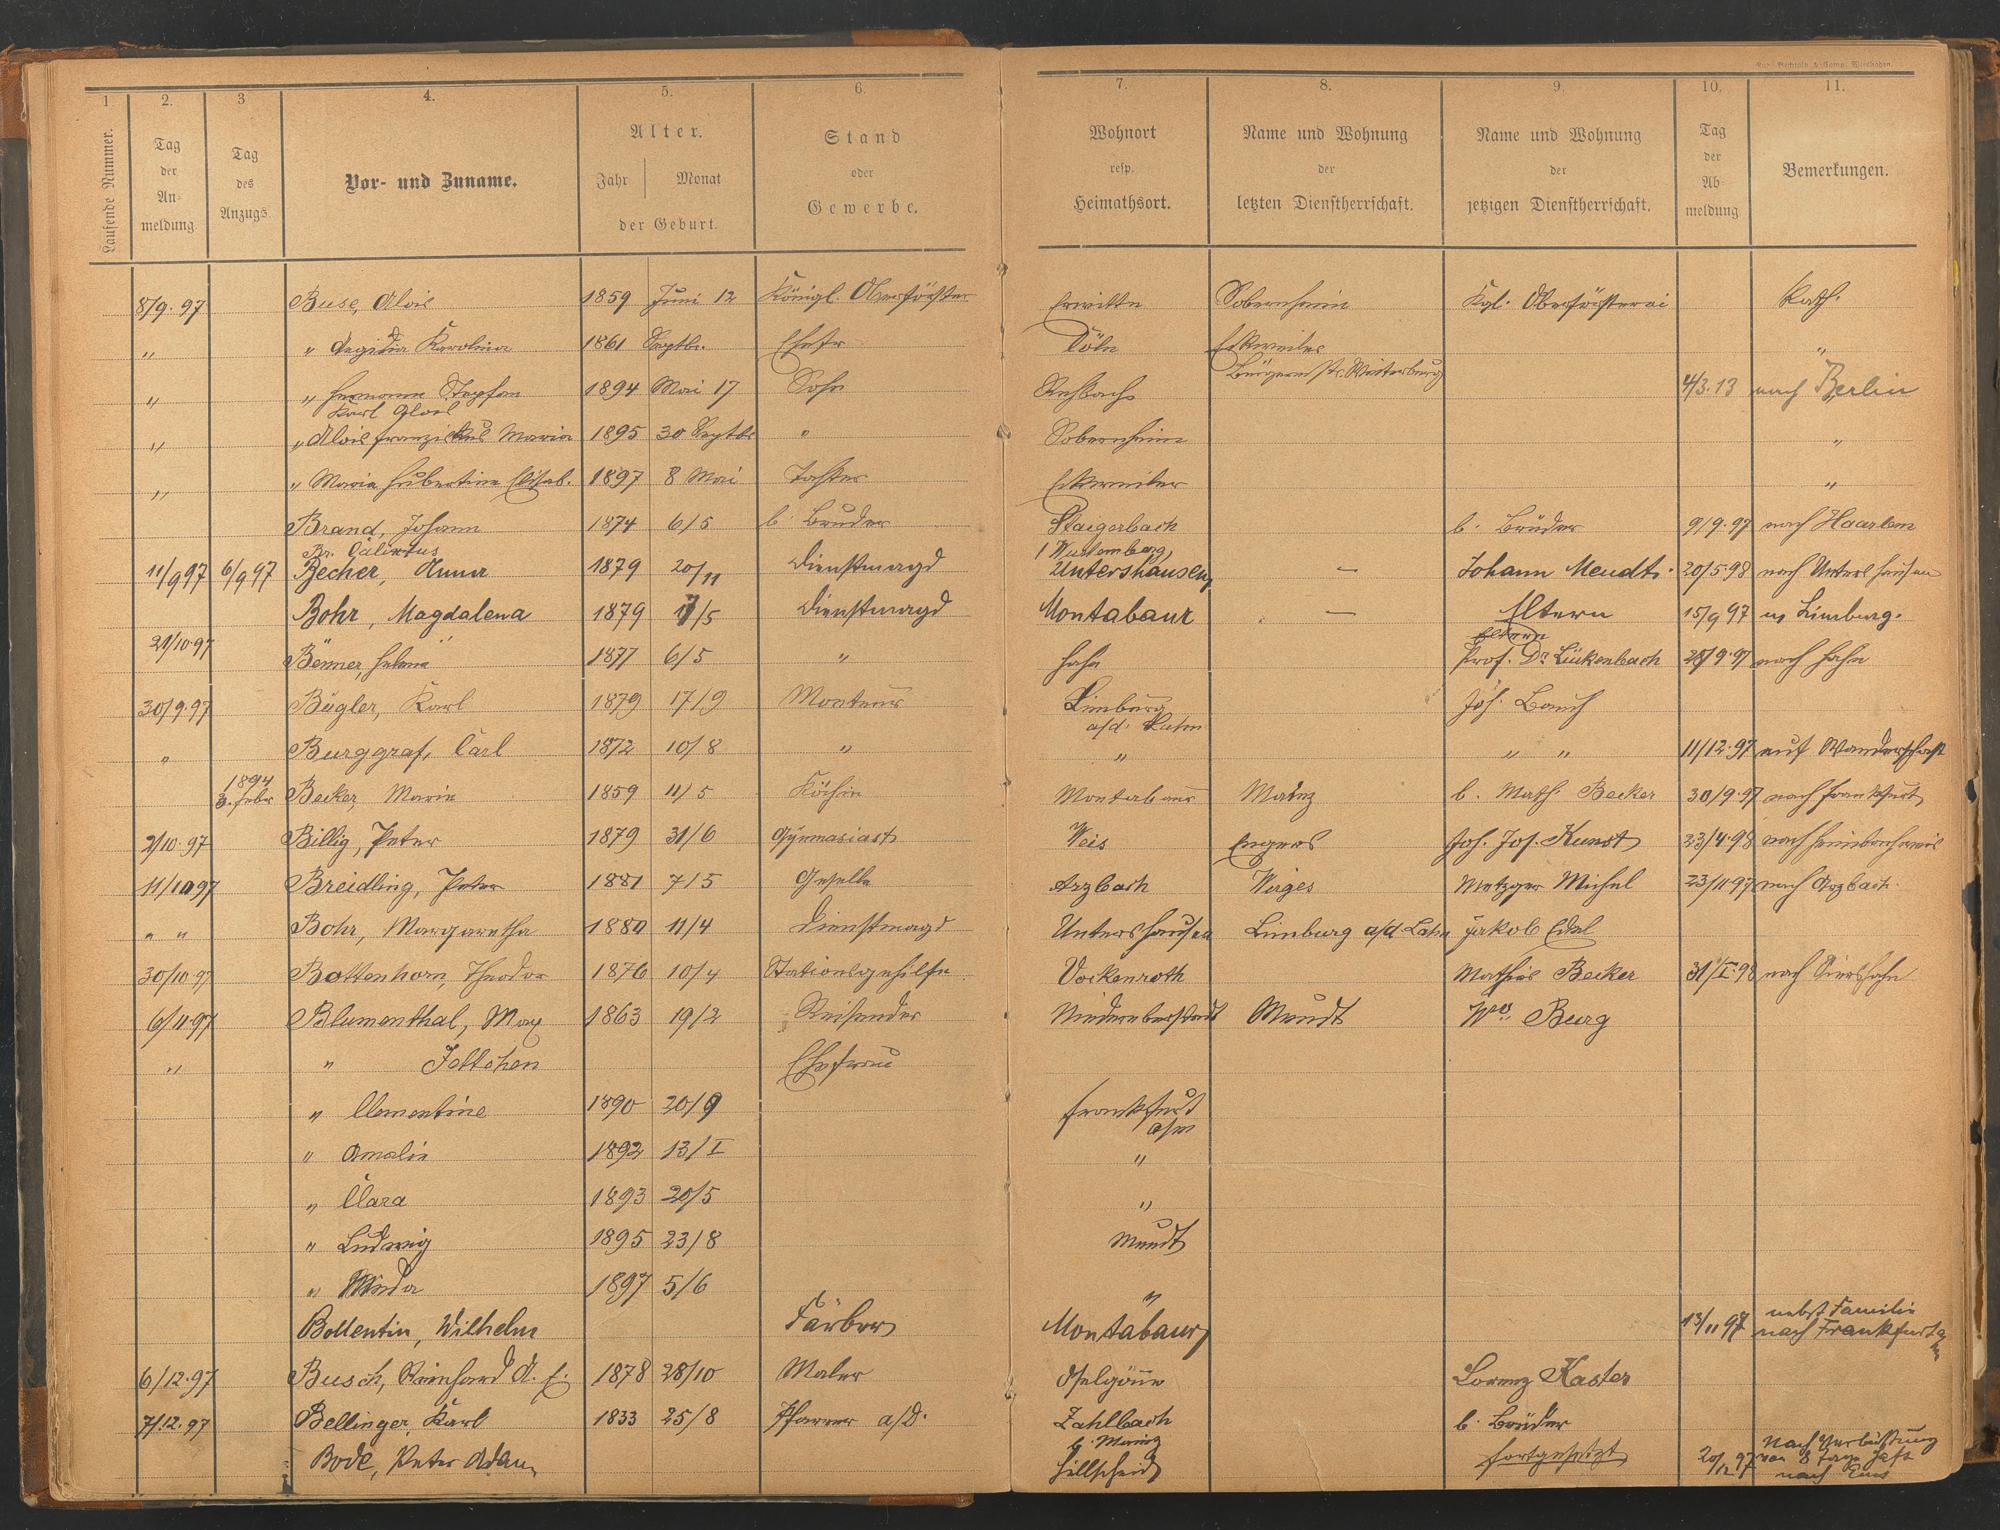 Aug. Bechtold & Comp. Wiesbaden.
1 2. 3 4. 5. 6. 7. 8. 9. 10. 11.
Laufende Nummer.
Tag der Anmeldung
Tag des Anzugs.
Vor- und Zuname.
Alter.
Jahr Monat
der Geburt.
Stand oder Gewerbe.
Wohnort resp. Heimathsort.
Name und Wohnung der letzten Dienstherrschaft.
Name und Wohnung der jetzigen Dienstherrschaft.
Tag der Abmeldung
Bemerkungen.
8/9.97 Buse, Alois 1859 Juni 12 Königl. Oberförster Erwitte Sobernheim Kgl. Oberförsterei Kath.
" " Aegidia Karolina 1861 Septbr. Ehefr Cöln Eckweiler "
Bürgermstr. Winterburg
" " Hermann Stephan 1894 Mai 17 Sohn Rehbach 4/3.13 nach Berlin
Karl
" " Alois Franziskus Maria 1895 30 Septbr " Sobernheim "
" " Maria Hubertine Elisab. 1897 8 Mai Tochter Eckweiler "
Brand, Johann 1874 6/5 b. Bruder Staigerbach b. Brüder 9/9.97 nach Haarlem
Br. Calixtus / Wurtemberg,
11/9 97 6/9 97 Becher, Anna 1879 20/11 Dienstmagd Untershausen — Johann Mendt. 20/5.98 nach Untershausen
Bohr, Magdalena 1879 17/5 Dienstmagd Montabaur — Eltern 15/9 97 n Limburg.
Eltern
21/10.97 Benner, Helena 1877 6/5 " Hahn Prof. Dr. Lückenbach 28/9.97 nach Hahn
30/9.97 Bügler, Karl 1879 17/9 Monteur Limburg Joh. Bauch
a/d. Lahn
" Burggraf, Carl 1872 10/8 " " " " 11/12.97 auf Wanderschaft
1894
3. Febr Becker, Maria 1859 11/5 Köchin Montabaur Mainz b. Math. Becker 30/9.97 nach Frankfurt
2/10.97 Billig, Peter 1879 31/6 Gymnasiast Weis Engers Joh. Jos. Kunst 23/4.98 nach Heimbachweis
11/10 97 Breidling, Peter 1881 7/5 Geselle Arzbach Wirges Metzger Michel 23/11.97 nach Arzbach.
" " Bohr, Margaretha 1880 11/4 Dienstmagd Untershausen Limburg a/d. Lahn Jakob Edel
30/10.97 Bottenhorn, Theodor 1876 10/4 Stationsgehilfe Vockenroth Mathias Becker 31/I.98 nach Siershahn
6/11.97 Blumenthal, Max 1863 19/2 Reisender Niedereberstadt Meudt Ww. Burg
" " Jettchen Ehefrau
" Clementine 1890 20/9 Frankfurt
a/m
" Amalie 1892 13/I "
" Clara 1893 20/5 "
" Ludwig 1895 23/8 Meudt
" 1897 5/6 "
Bollentin, Wilhelm Färber Montabaur 13/11 97 nebst Familie
nach Frankfurt a/m
6/12.97 Busch, Reinhard A. F. 1878 28/10 Maler Ofelgönne Lorenz Kaster
7/12.97 Bellinger, Karl 1833 25/8 Pfarrer a/D. Zahlbach b. Brüder
b. Mainz
Bode, Peter Adam Hillscheid fortgesetzt 20/12 97 Nach Verbüßung
von 8 Tage Haft
nach Ems